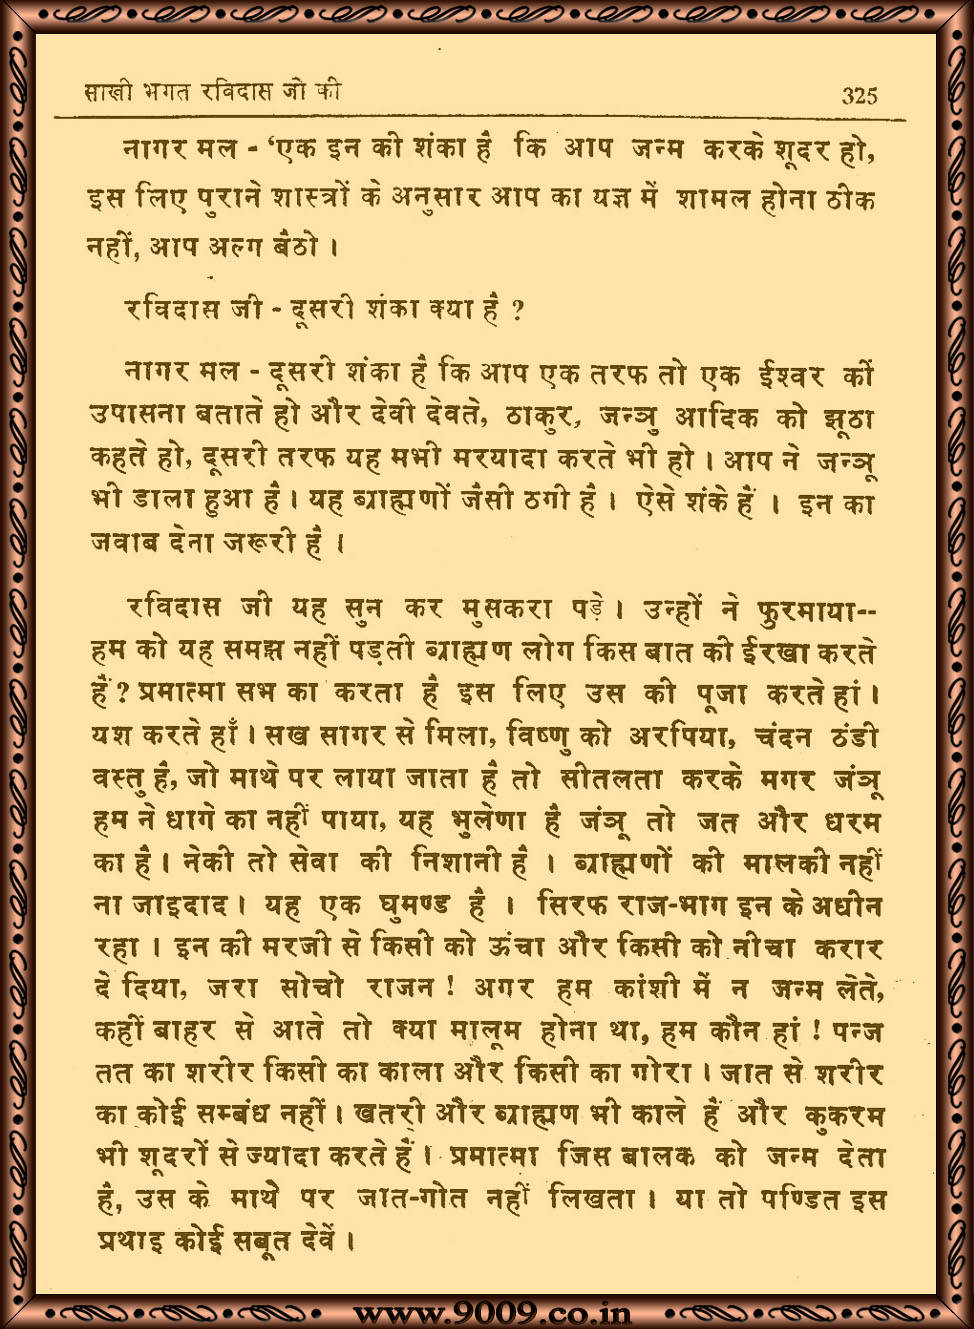 साखी भगत रविदास जी की 325
नागर मल - ‘एक इन की शंका है कि आप जन्म करके शूदर हो,
इस लिए पुराने शास्त्रों के अनुसार आप का यज्ञ में शामल होना ठीक
नहीं, आप अल्ग बैठो ।
रविदास जी - दूसरी शंका क्या है ?
नागर मल - दूसरी शंका है कि आप एक तरफ तो एक ईश्वर कीं
उपासना बताते हो और देवी देवते, ठाकुर, जन्ञु आदिक को झूठा
कहते हो, दूसरी तरफ यह मभी मरयादा करते भी हो । आप ने जन्ञू
भी डाला हुआ है । यह ब्राह्मणों जैसी ठगी है । ऐसे शंके हैं । इन का
जवाब देना जरूरी है ।
रविदास जी यह सुन कर मुसकरा पड़े । उन्हों ने फुरमाया--
हम को यह समझ नहीं पड़ती ब्राह्मण लोग किस बात की ईरखा करते
हैं ? प्रमात्मा सभ का करता है इस लिए उस की पूजा करते हां ।
यश करते हाँ । सख सागर से मिला, विष्णु को अरपिया, चंदन ठंडी
वस्तु है, जो माथे पर लाया जाता है तो सीतलता करके मगर जंञू
हम ने धागे का नहीं पाया, यह भुलेणा है जंञू तो जत और धरम
का है । नेकी तो सेवा की निशानी है । ब्राह्मणों की मालकी नहीं
ना जाइदाद । यह एक घुमण्ड है । सिरफ राज-भाग इन के अधीन
रहा । इन की मरजी से किसी को ऊंचा और किसी को नीचा करार
दे दिया, जरा सोचो राजन ! अगर हम कांशी में न जन्म लेते,
कहीं बाहर से आते तो क्या मालूम होना था, हम कौन हां ! पन्ज
तत का शरीर किसी का काला और किसी का गोरा । जात से शरीर
का कोई सम्बंध नहीं । खतरी और ब्राह्मण भी काले हैं और कुकरम
भी शूदरों से ज्यादा करते हैं । प्रमात्मा जिस बालक को जन्म देता
है, उस के माथे पर जात-गोत नहीं लिखता । या तो पण्डित इस
प्रथाइ कोई सबूत देवें ।
www.9009.co.in